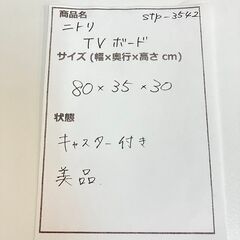 商品名 stp-3542
ニトリ
TVボード
サイズ (幅×奥行×高さ cm)
80×35×30
状態
キャスター付き
美品